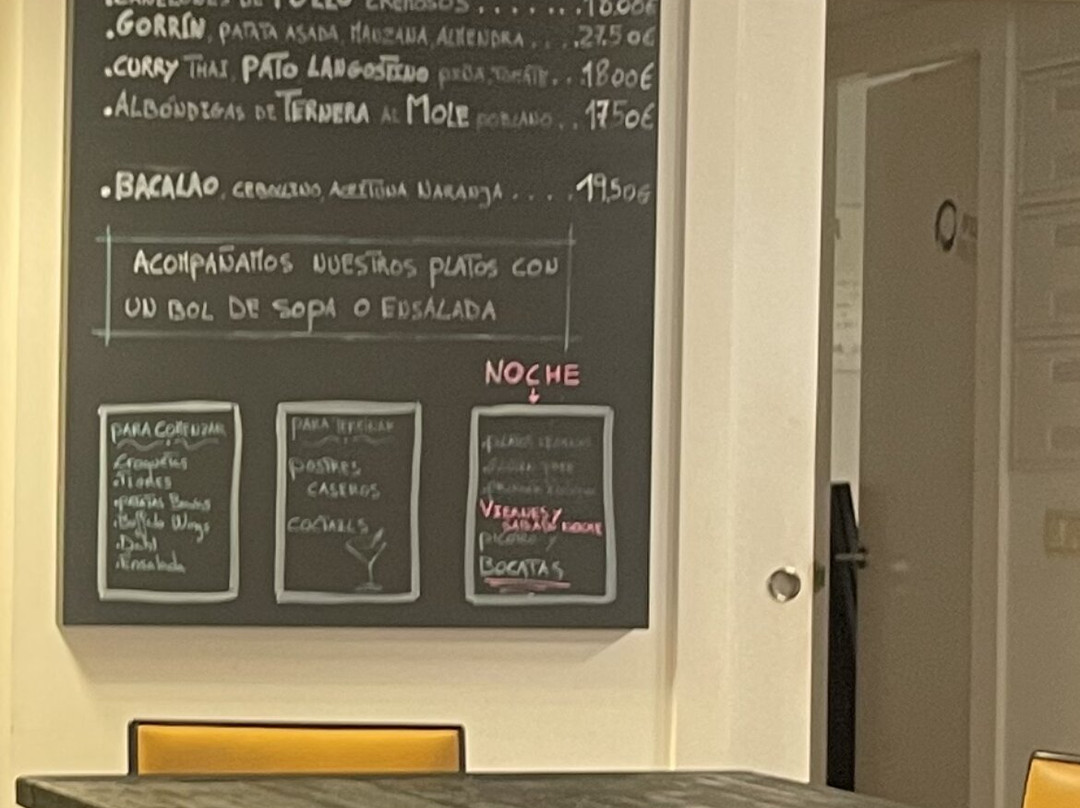 CANELONES DE POLLO CREMOSOS ........18.00€
.GORRÍN, PATATA ASADA, MANZANA, ALMENDRA ....27.50€
.CURRY THAI, PATO LANGOSTINO PIÑA, TOMATE..18.00€
.ALBÓNDIGAS DE TERNERA AL MOLE POBLANO..17.50€
.BACALAO, CEBOLLINO, ACEITUNA NARANJA.....19,50€
ACOMPAÑAMOS NUESTROS PLATOS CON
UN BOL DE SOPA O ENSALADA
NOCHE
PARA COMENZAR
Croquetas
.Tigres
.PATATAS Bravas
.Buffalo Wings
.Dahl
.Ensalada
PARA TERMINAR
POSTRES
CASEROS
COCTAILS
VIERNES Y
SABADO NOCHE
PICOTEO Y
BOCATAS